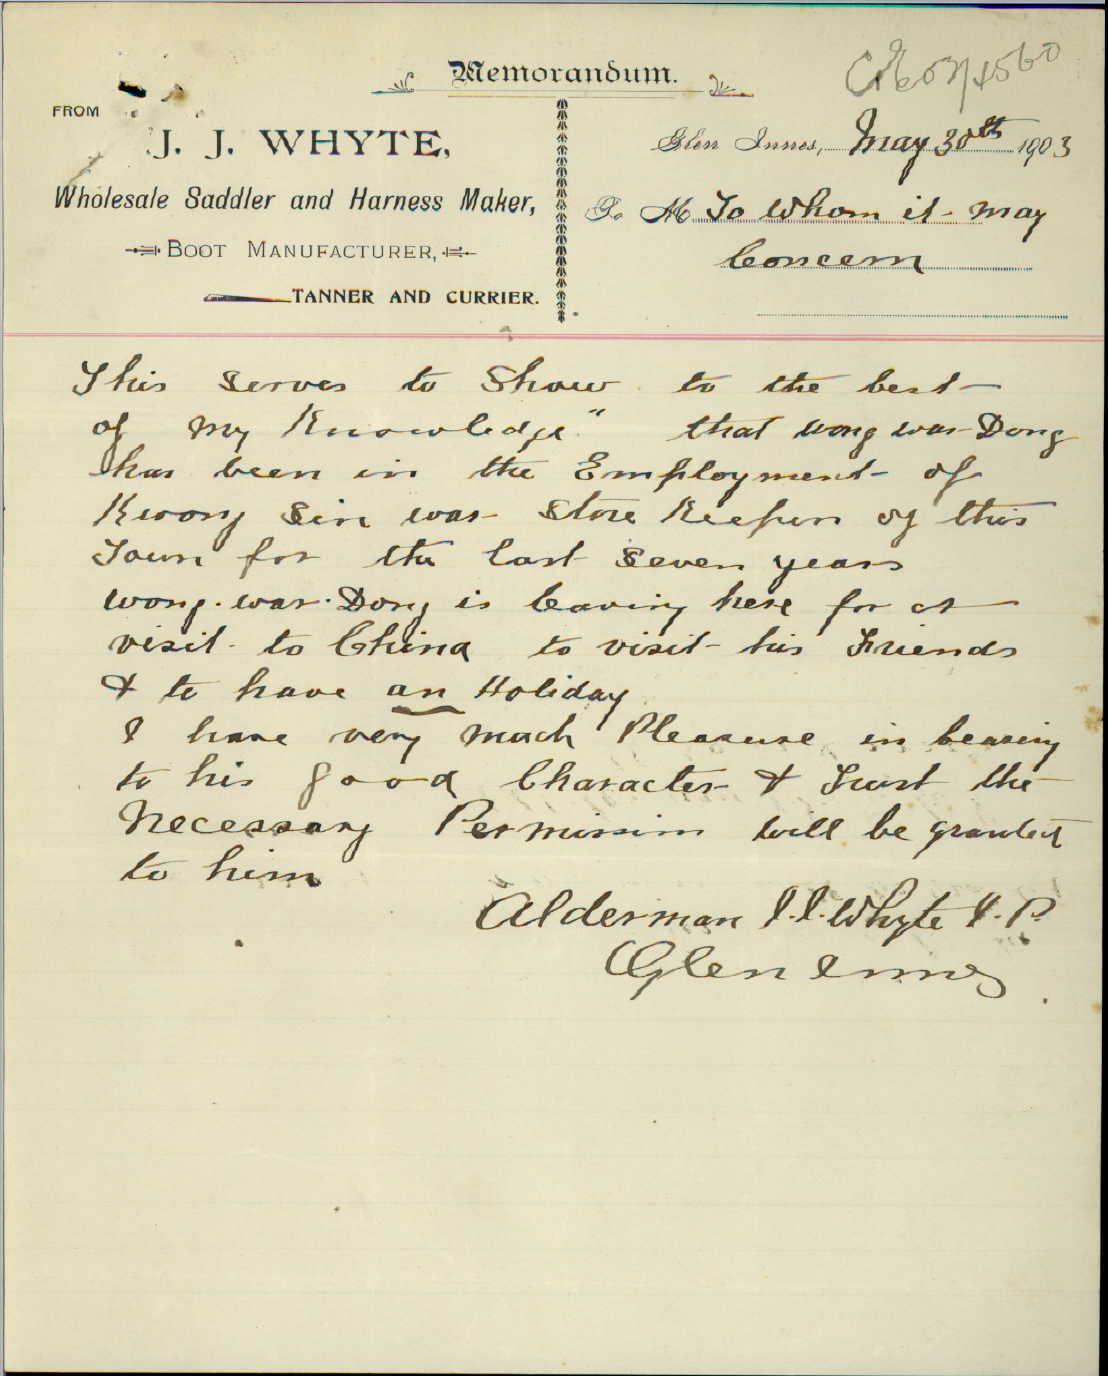 Memorandum.
C03/4560
FROM
J. J. WHYTE,
Wholesale Saddler and Harness Maker,
BOOT MANUFACTURER,
TANNER AND CURRIER.
Glen Innes, May 30th 1903
To M To Whom it may
Concern
This serves to Show to the best
of my Knowledge" that wong war Dong
has been in the Employment of
Kwong Sin war Store Keeper of this
Town for the last Seven years
wong. war. Dong is leaving here for a
visit to China to visit his Friends
& to have an Holiday
I have very much Pleasure in bearing
to his good Character & Trust the
Necessary Permission will be granted
to him
Alderman J.J. Whyte J. P.
Glen Innes